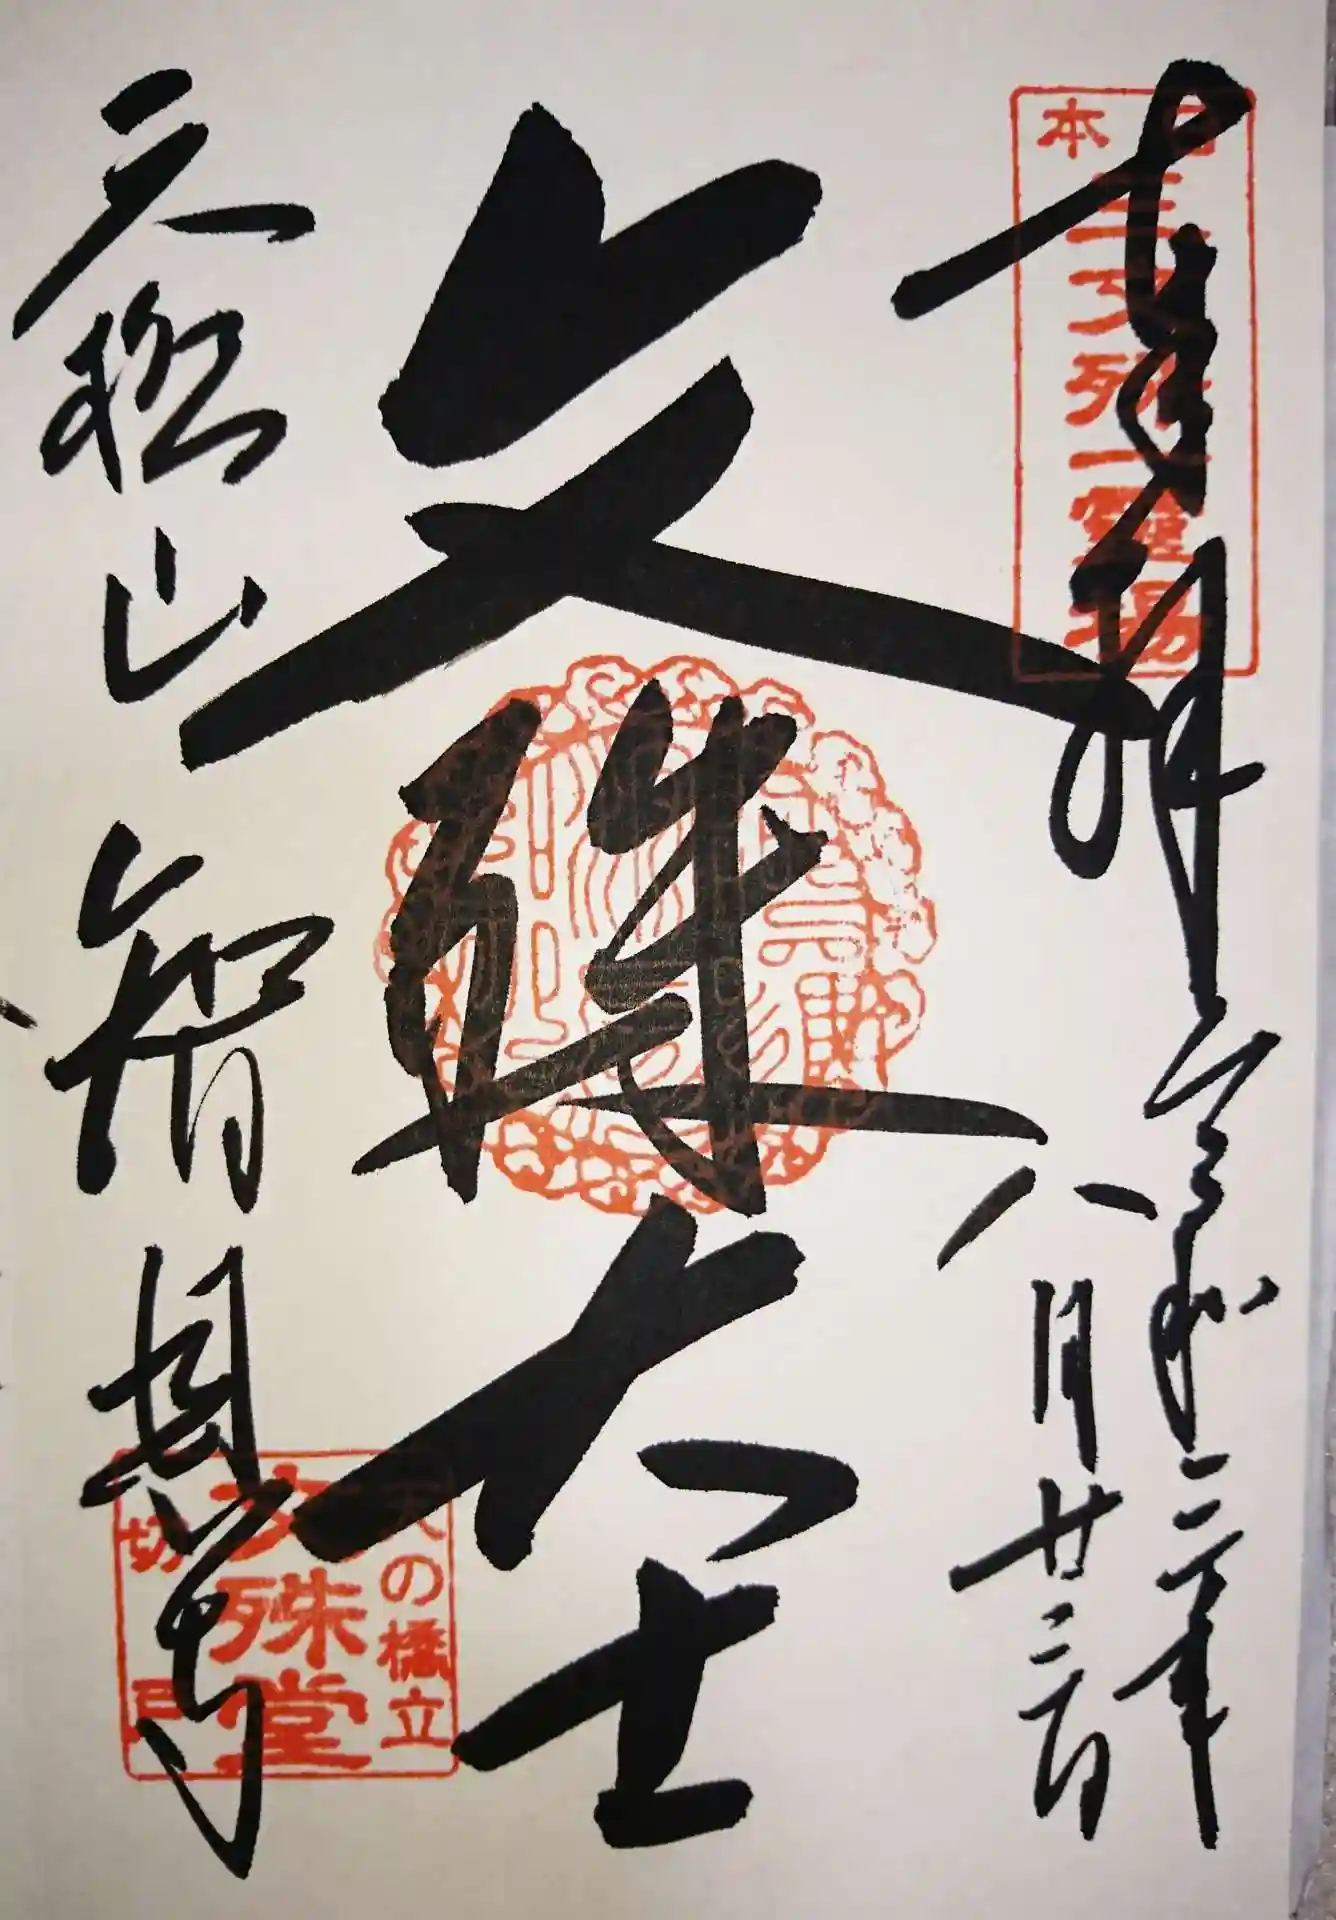 奉拝
令和二年
八月廿二日
日本
三文殊一霊場
文殊大士
天橋山
智恩寺
天の橋立
文殊堂
切戸